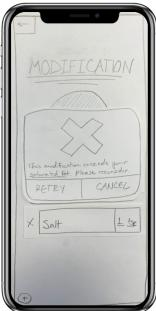 MODIFICATION
This modification exceeds your
saturated fat. Please reconsider.
RETRY CANCEL
X Salt 1 tsp